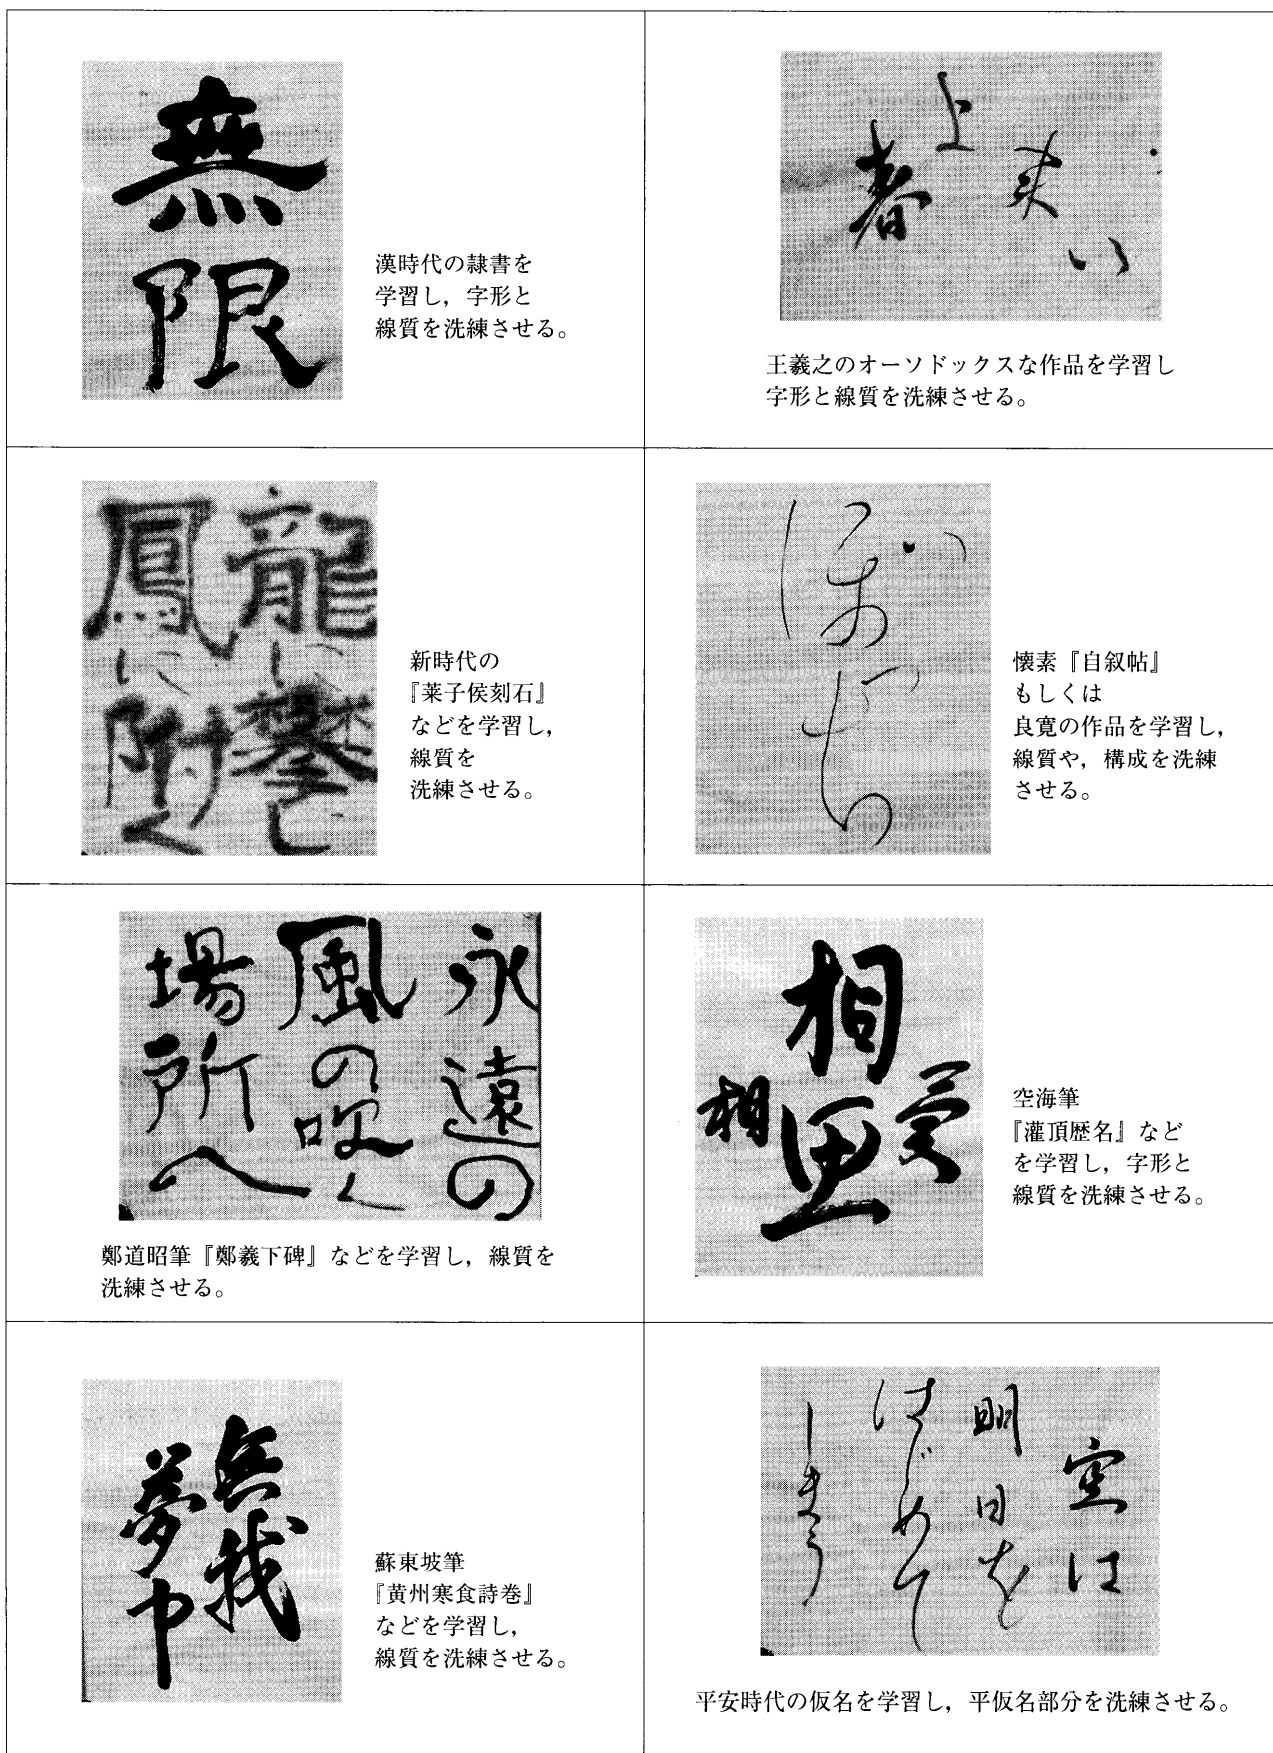 無限
漢時代の隷書を
学習し，字形と
線質を洗練させる。
春よ来い
王羲之のオーソドックスな作品を学習し
字形と線質を洗練させる。
龍に攀し
鳳に附く
新時代の
『莱子侯刻石』
などを学習し，
線質を
洗練させる。
懐素『自叙帖』
もしくは
良寛の作品を学習し，
線質や，構成を洗練
させる。
永遠の
風の吹く
場所へ
鄭道昭筆『鄭羲下碑』などを学習し，線質を
洗練させる。
相思
相愛
空海筆
『灌頂歴名』など
を学習し，字形と
線質を洗練させる。
無我
夢中
蘇東坡筆
『黄州寒食詩巻』
などを学習し，
線質を洗練させる。
空は
明日を
はじめて
しまう
平安時代の仮名を学習し，平仮名部分を洗練させる。